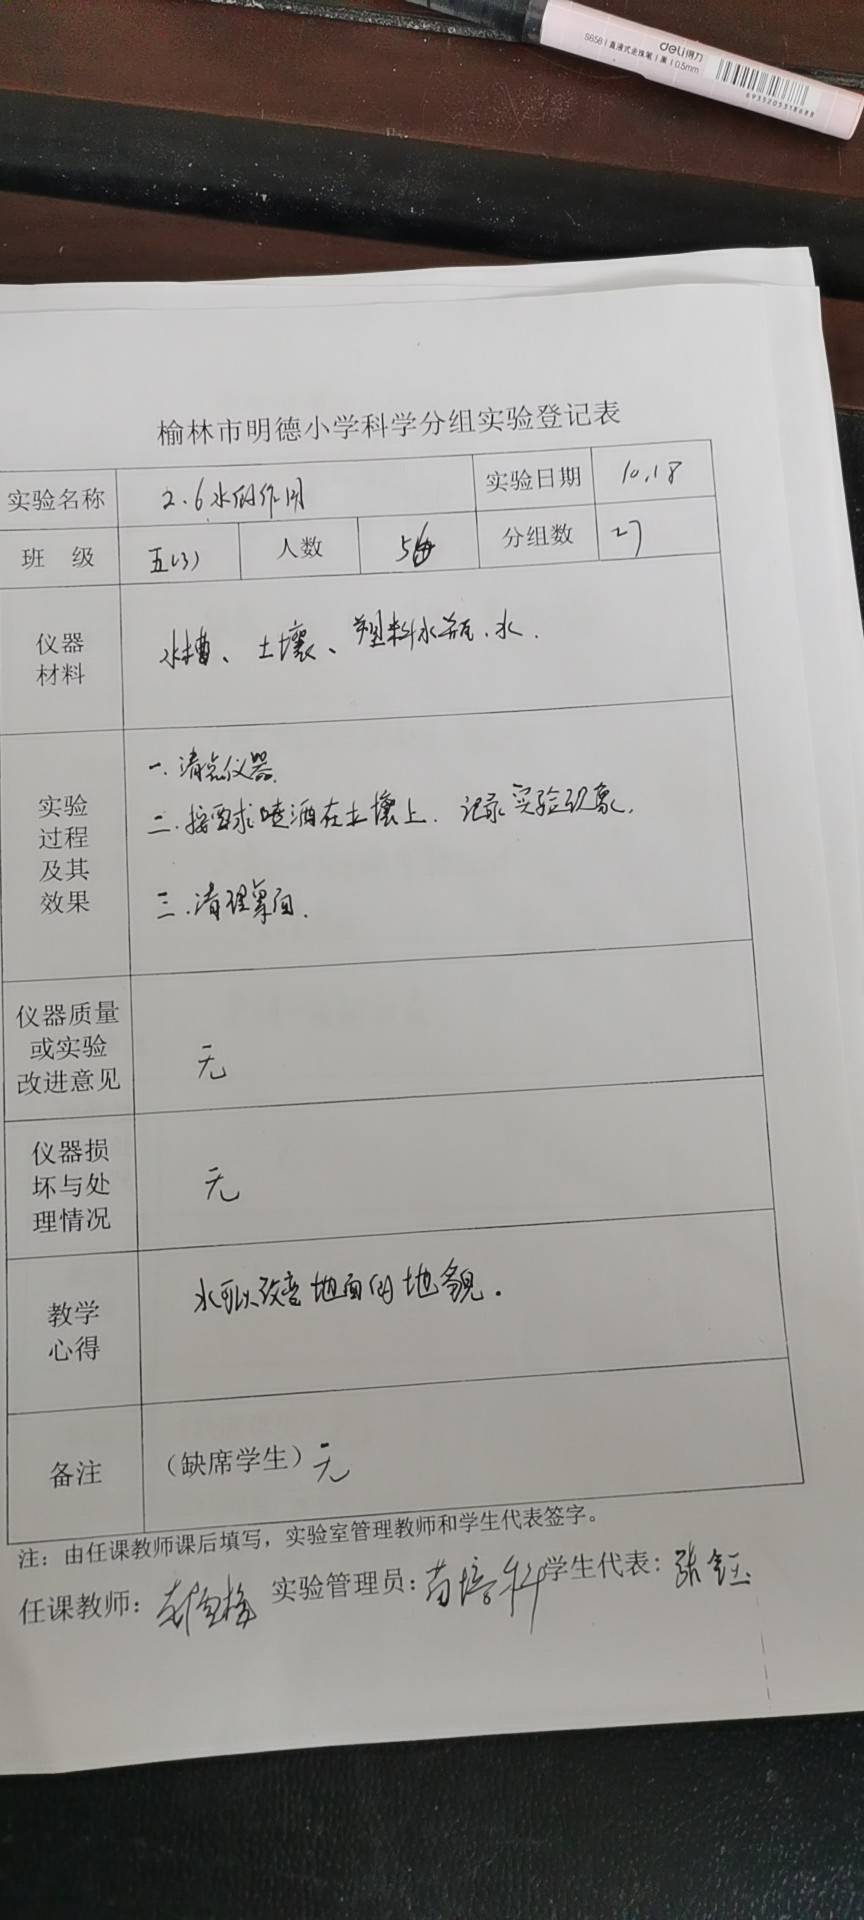 deli得力
S656 | 直液式走珠笔 | 黑 | 0.5mm
6935205318688
榆林市明德小学科学分组实验登记表
实验名称 2.6水的作用 实验日期 10.18
班 级 五(3) 人数 5 分组数 27
仪器
材料
水槽、土壤、塑料水瓶、水.
实验
过程
及其
效果
一.清点仪器.
二.按要求喷洒在土壤上.记录实验现象.
三.清理桌面.
仪器质量
或实验
改进意见
无
仪器损
坏与处
理情况
无
教学
心得
水可以改变地面的地貌.
备注
(缺席学生)无
注:由任课教师课后填写,实验室管理教师和学生代表签字。
任课教师: 实验管理员:苗培科 学生代表:张钰